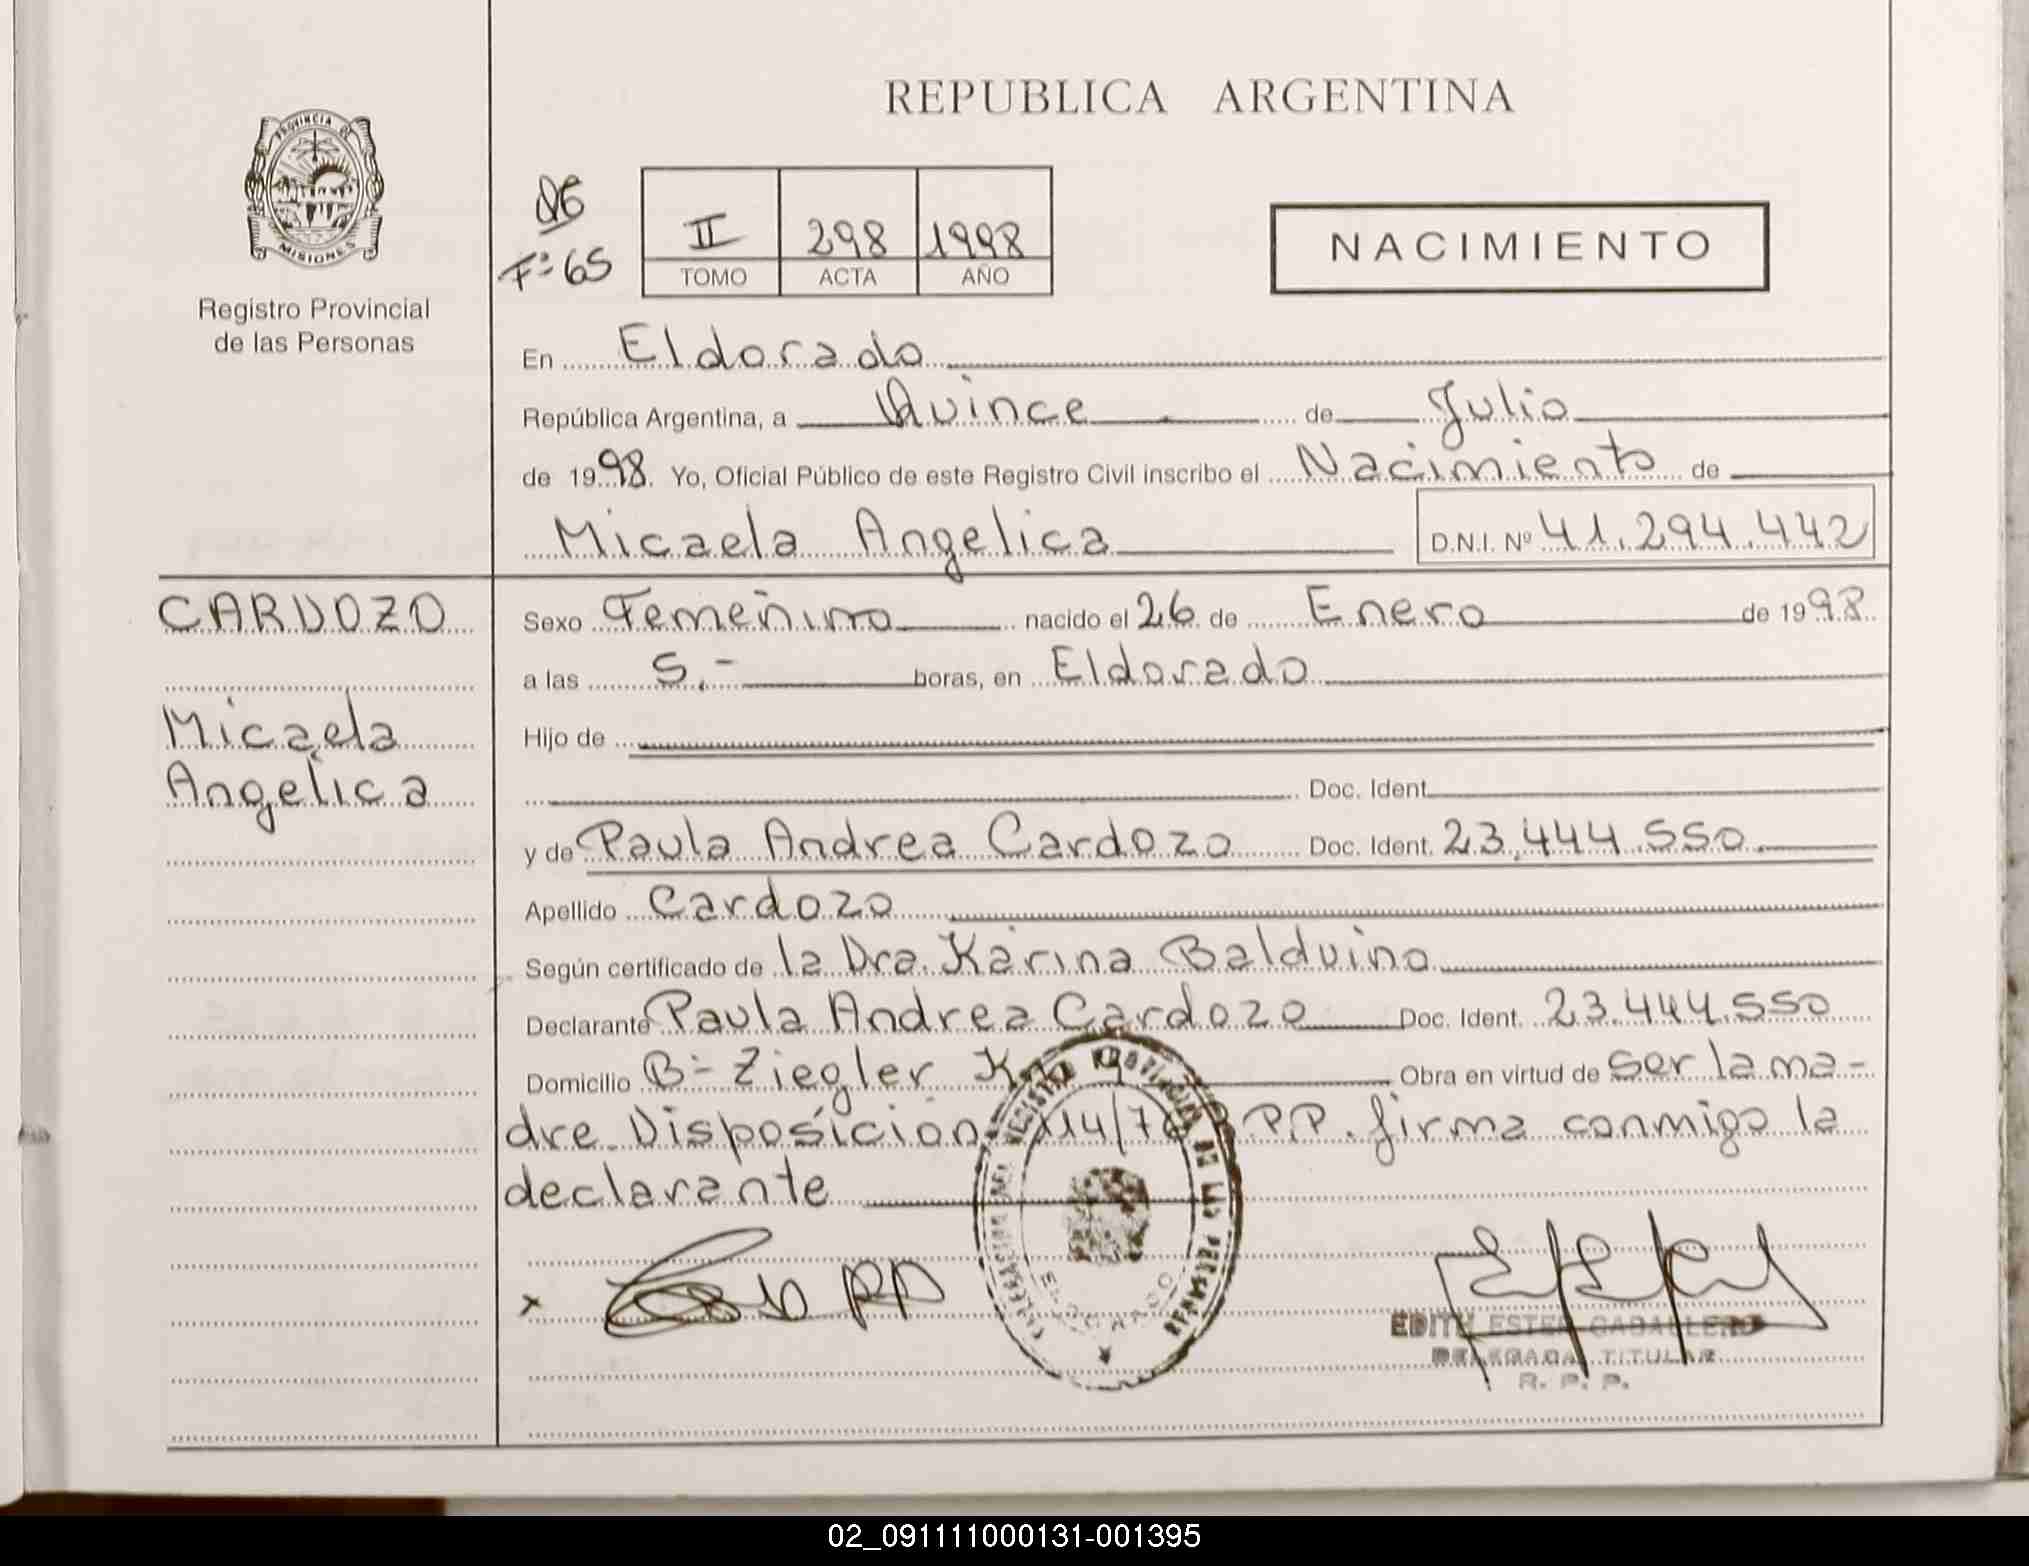 REPUBLICA ARGENTINA
PROVINCIA DE
MISIONES
Registro Provincial
de las Personas
F° 65
II 298 1998
TOMO ACTA AÑO
NACIMIENTO
En Eldorado
República Argentina, a Quince de Julio
de 1998. Yo, Oficial Público de este Registro Civil inscribo el Nacimiento de
Micaela Angelica D.N.I. Nº 41.294.442
CARDOZO
Micaela
Angelica
Sexo Femenino nacido el 26 de Enero de 1998.
a las 5.- horas, en Eldorado
Hijo de
Doc. Ident.
y de Paula Andrea Cardozo Doc. Ident. 23.444.550.
Apellido Cardozo
Según certificado de la Dra. Karina Balduino
Declarante Paula Andrea Cardozo Doc. Ident. 23.444.550
Domicilio B° Ziegler Km 9 Obra en virtud de ser la ma-
dre. Disposición 114/76 R.P.P. firma conmigo la
declarante
REGISTRO PROVINCIAL DE LAS PERSONAS
ELDORADO
x
EDITH ESTER CABALLERO
DELEGADA TITULAR
R. P. P.
02_091111000131-001395